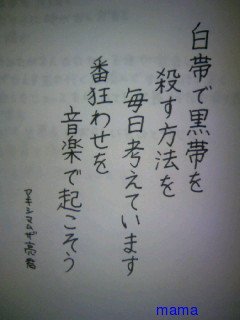 白帯で黒帯を
殺す方法を
毎日考えています
番狂わせを
音楽で起こそう
マキシマムザ亮君
mama